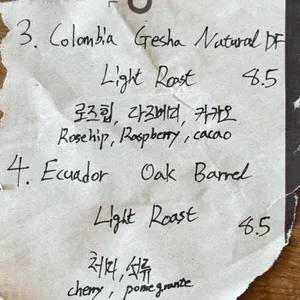 3. Colombia Gesha Natural DF
Light Roast 8.5
로즈힙, 라즈베리, 카카오
Rosehip, Raspberry, cacao
4. Ecuador Oak Barrel
Light Roast 8.5
체리, 석류
cherry, pomegrante